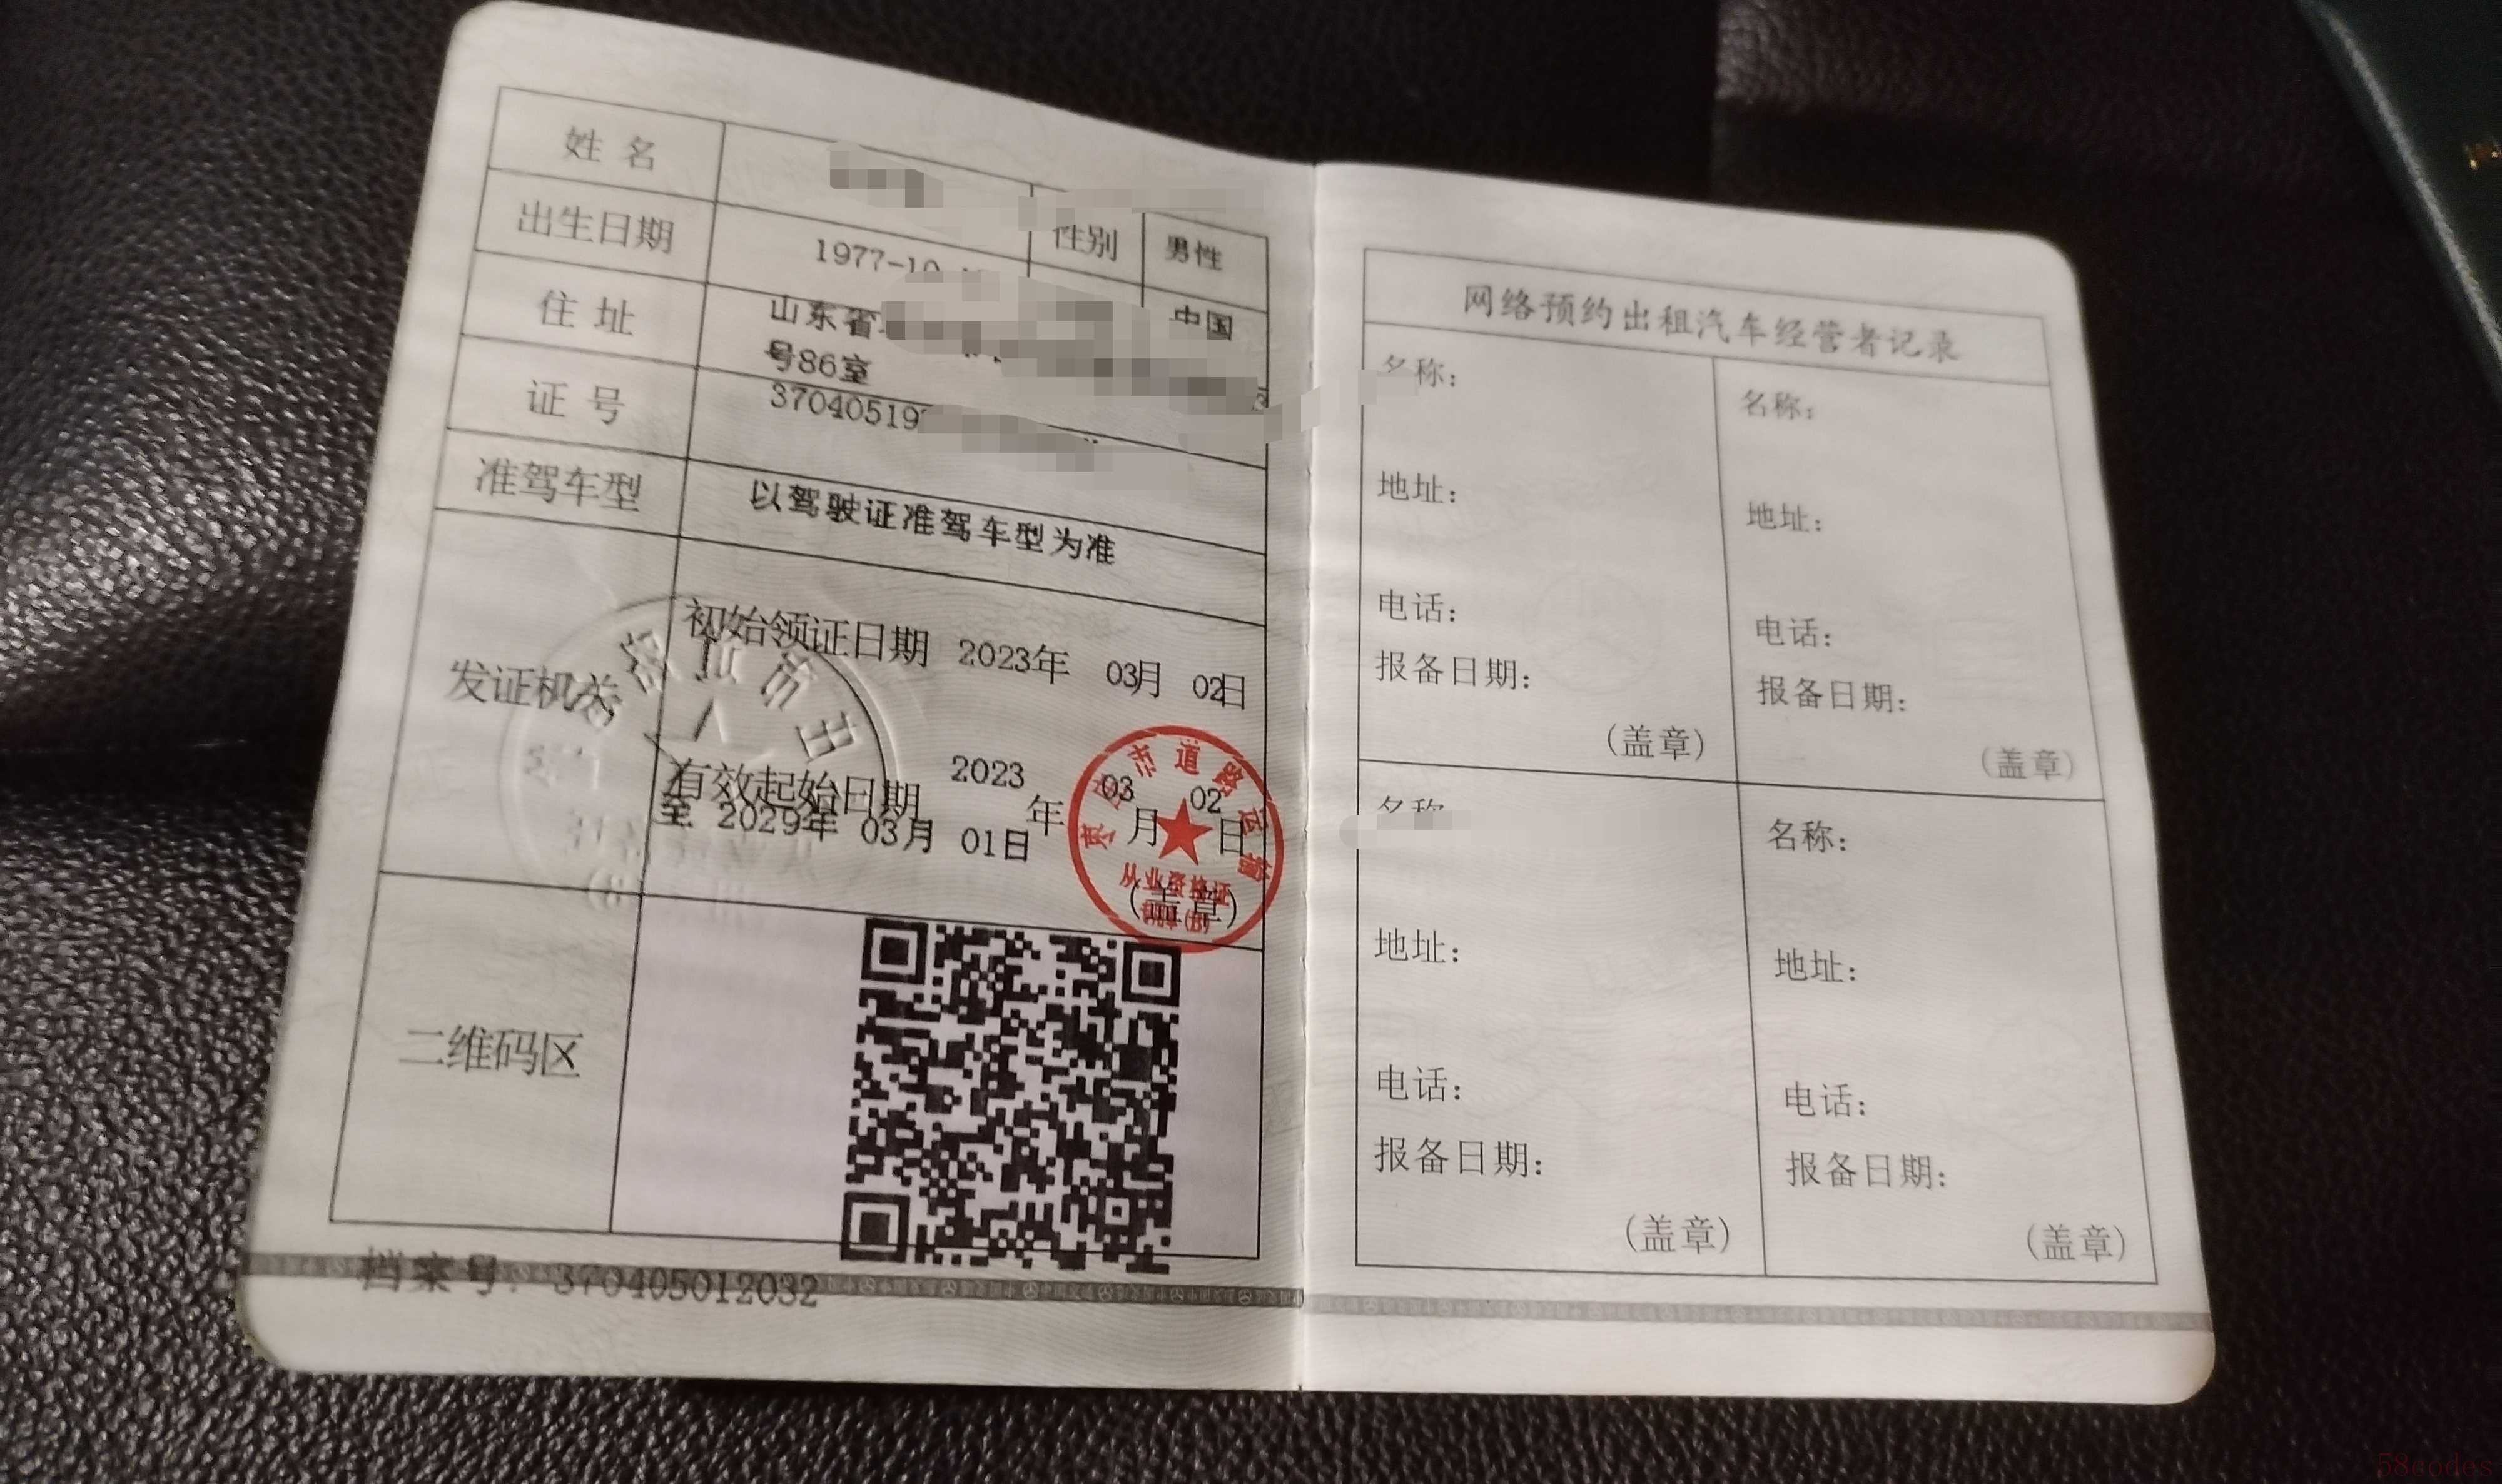 姓 名
性别 男性
出生日期 1977-10
中国
住 址 山东省
号86室
证 号 37040519
准驾车型 以驾驶证准驾车型为准
发证机关
初始领证日期 2023年 03月 02日
有效起始日期 2023年 03月 02日
至 2029年 03月 01日
(盖章)
市道路运输
从业资格证
专用章(B)
二维码区
档案号: 370405012032
网络预约出租汽车经营者记录
名称:
地址:
电话:
报备日期:
(盖章)
名称:
地址:
电话:
报备日期:
(盖章)
名称
地址:
电话:
报备日期:
(盖章)
名称:
地址:
电话:
报备日期:
(盖章)
58codes